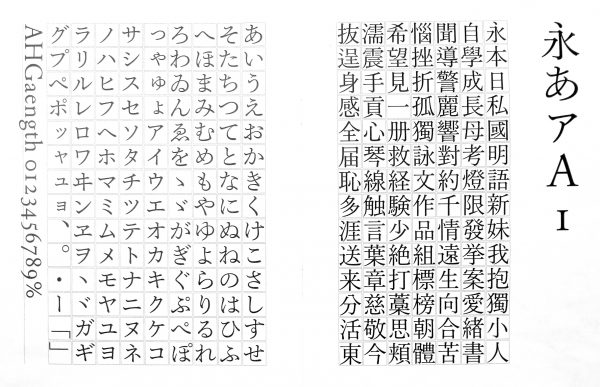 永あアA1
永本日私國明語新妹我抱獨小人
自學成長母考燈限發挙案愛緒書
聞導警麗響對約千情遠生向合苦
惱挫折孤獨詠文作品組標榜朝體
希望見一册救経験少絶打藁思頬
濡震手貢心琴線触言葉章慈敬今
抜逞身感全届恥多涯送来分活東
あいうえおかきくけこさしすせ
そたちつてとなにぬねのはひふ
へほまみむめもやゆよらりるれ
ろわゐんゑをゝゞがぎぐぷぺぽ
っゃゅょアイウエオカキクケコ
サシスセソタチツテトナニヌネ
ノハヒフヘホマミムメモヤユヨ
ラリルレロワヰンヱヲヽヾガギ
グプペポッャュョ、。・ー「」
AHGaength 0123456789%